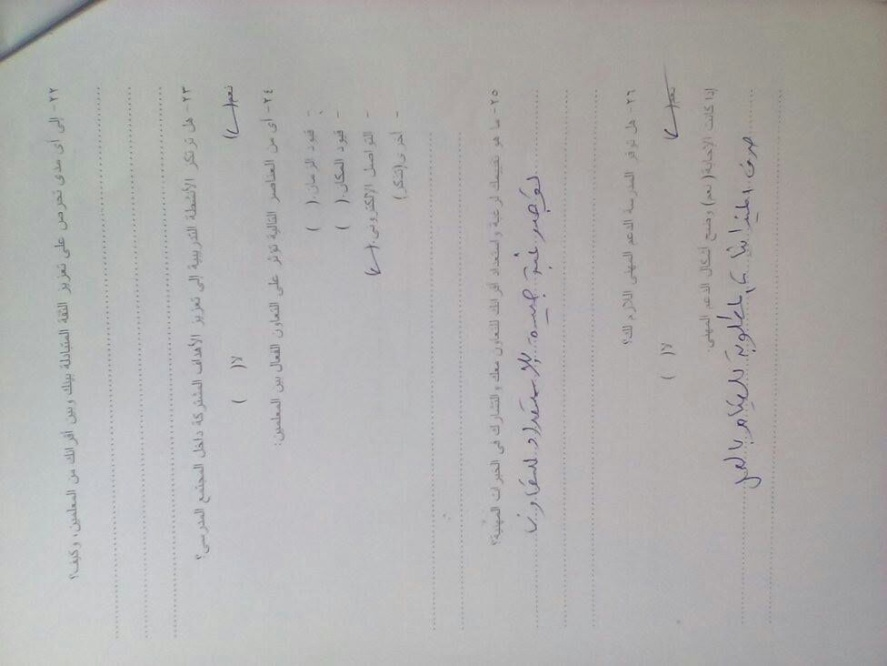 ٢٢- إلى أى مدى تحرص على تعزيز الثقة المتبادلة بينك وبين أقرانك من المعلمين، وكيف؟
٢٣- هل ترتكز الأنشطة التدريبية إلى تعزيز الأهداف المشتركة داخل المجتمع المدرسى؟
نعم(✓) لا( )
٢٤- أى من العناصر التالية تؤثر على التعاون الفعال بين المعلمين:
- قيود الزمان ( )
- قيود المكان ( )
- التواصل الإلكترونى (✓)
- أخرى(تذكر)
٢٥- ما هو تقييمك لرغبة واستعداد أقرانك للتعاون معك والتشارك فى الخبرات المهنية؟
يوجد رغبة جيدة للاستعداد للتعاون
٢٦- هل توفر المدرسة الدعم المهنى اللازم لك؟
نعم(✓) لا( )
إذا كانت الإجابة( نعم) وضح أشكال الدعم المهنى.
المطلوبة للقيام بالعمل